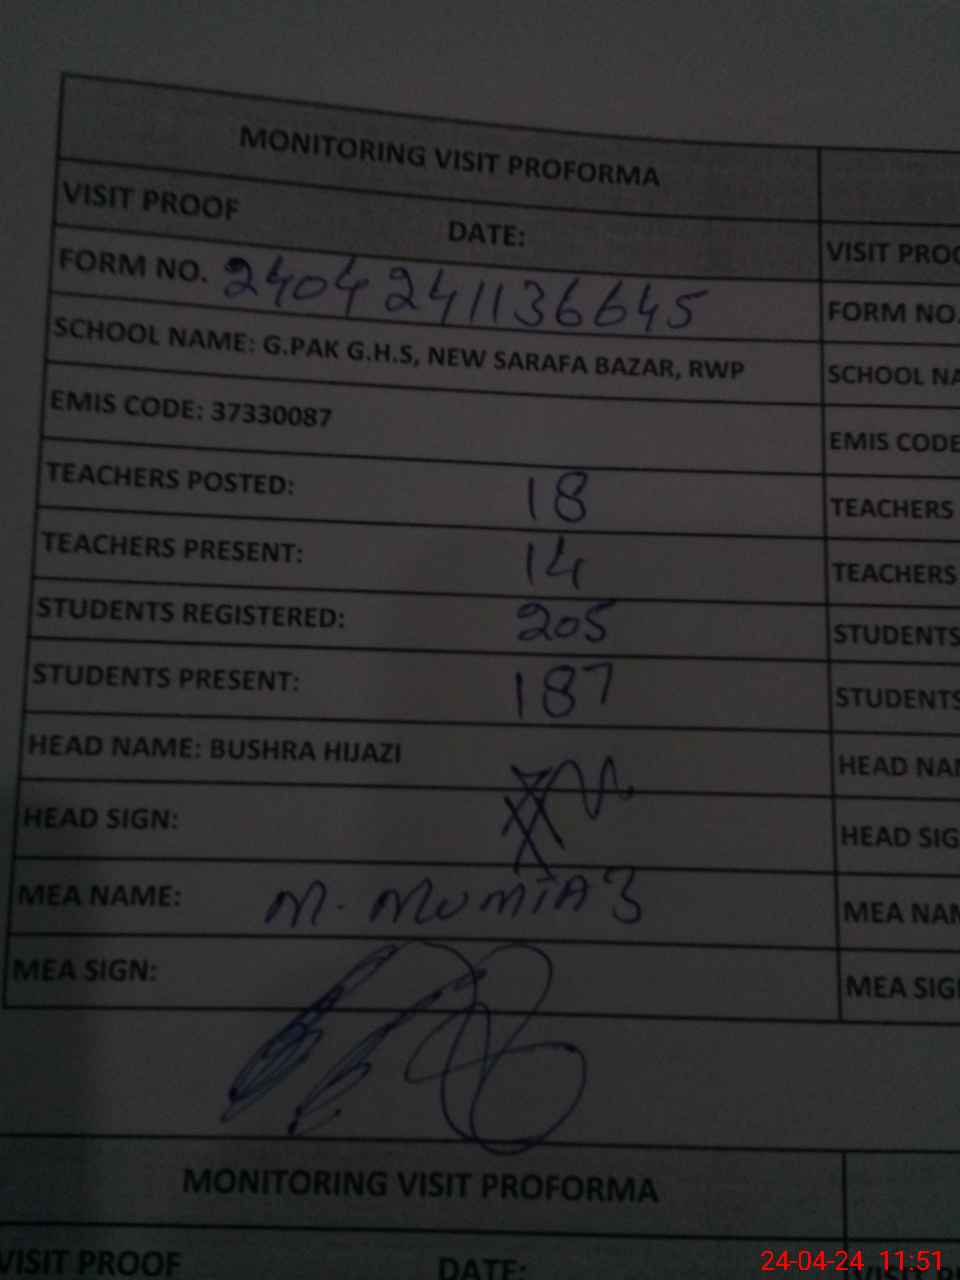 MONITORING VISIT PROFORMA
VISIT PROOF DATE:
FORM NO. 2404241136645
SCHOOL NAME: G.PAK G.H.S, NEW SARAFA BAZAR, RWP
EMIS CODE: 37330087
TEACHERS POSTED: 18
TEACHERS PRESENT: 14
STUDENTS REGISTERED: 205
STUDENTS PRESENT: 187
HEAD NAME: BUSHRA HIJAZI
HEAD SIGN:
MEA NAME: M. MUMTAZ
MEA SIGN:
VISIT PROO
FORM NO.
SCHOOL NA
EMIS CODE
TEACHERS
TEACHERS
STUDENTS
STUDENTS
HEAD NAM
HEAD SIG
MEA NAM
MEA SIG
MONITORING VISIT PROFORMA
VISIT PROOF DATE:
24-04-24 11:51